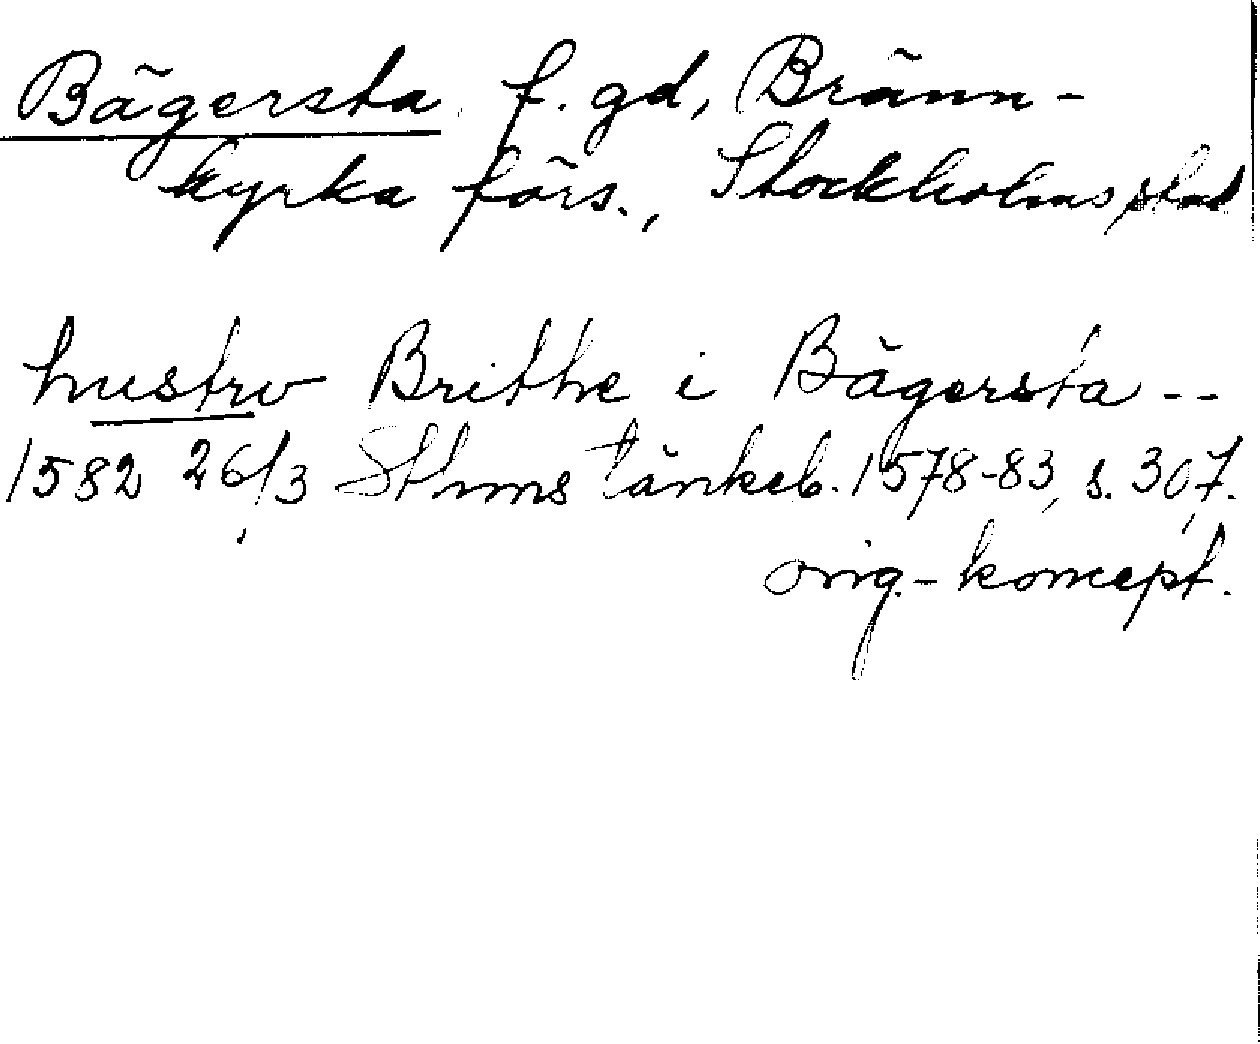 Bägersta f. gd, Bränn-
kyrka förs., Stockholms stad
hustrv Britthe i Bägersta --
1582 26/3 Sthms tänkeb. 1578-83, s. 307.
orig.-koncept.